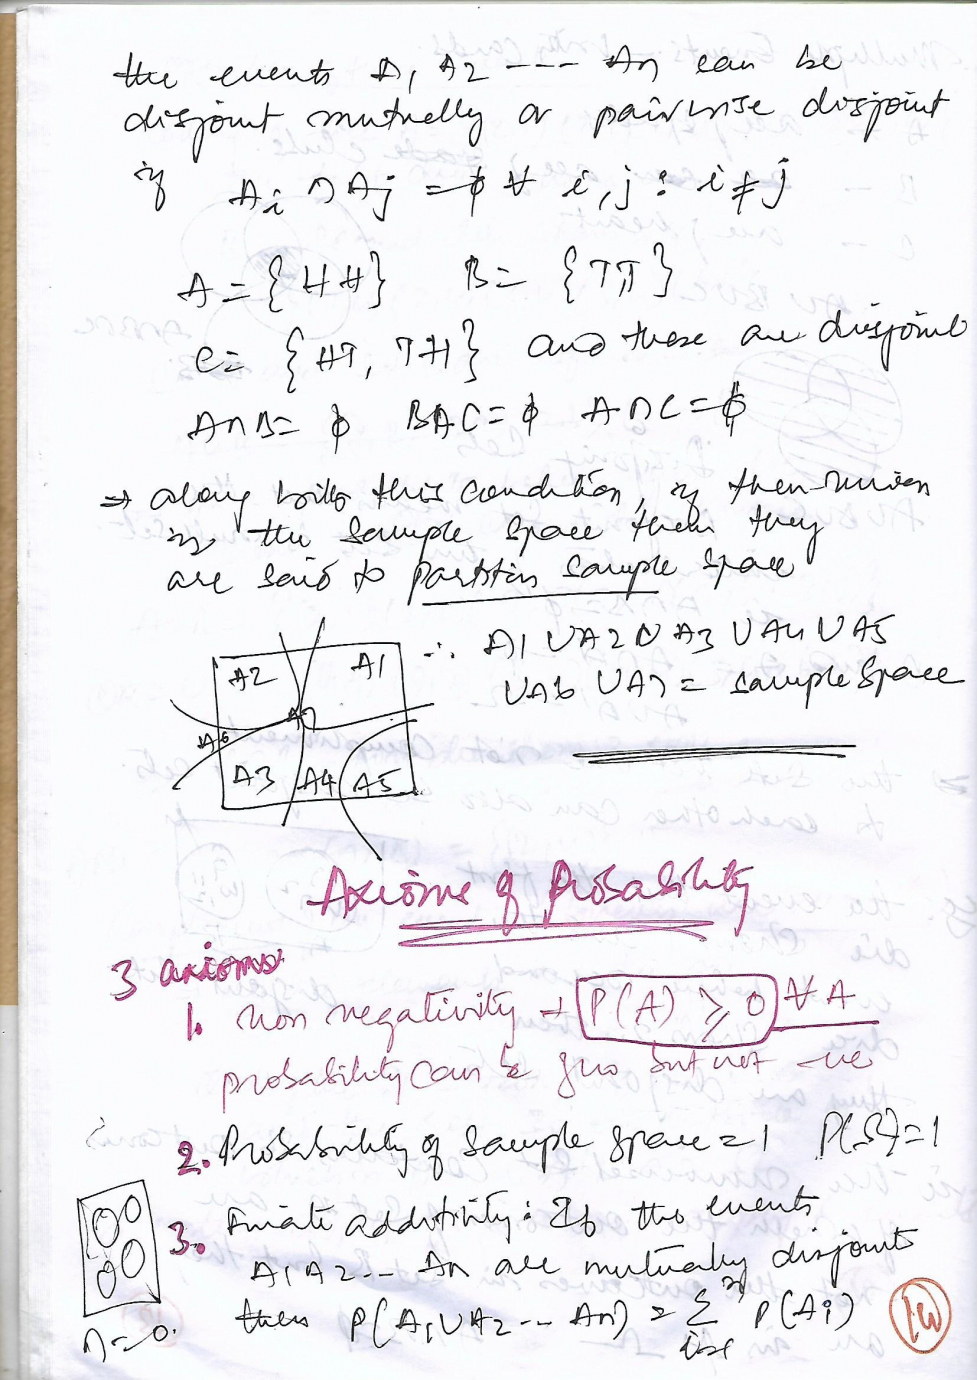 the events A1 A2 ---- An can be
disjoint mutually or pairwise disjoint
if Ai ∩ Aj = ϕ ∀ i,j : i ≠ j
A = {HH} B = {TT}
C = {HT, TH} and these are disjoint
A∩B = ϕ B∩C = ϕ A∩C = ϕ
⇒ along with this condition, if their union
is the sample space then they
are said to partition sample space
A2 A1
A7
A6
A3 A4 A5
∴ A1 ∪ A2 ∪ A3 ∪ A4 ∪ A5
∪ A6 ∪ A7 = sample space
Axioms of Probability
3 axioms
1. non negativity → P(A) ≥ 0 ∀ A
probability can be zero but not -ve
2. Probability of sample space = 1 P(S) = 1
3. Finite additivity : If the events
A1 A2 -- An are mutually disjoint
then P(A1 ∪ A2 -- An) = n∑i=1 P(Ai)
∩ = 0.